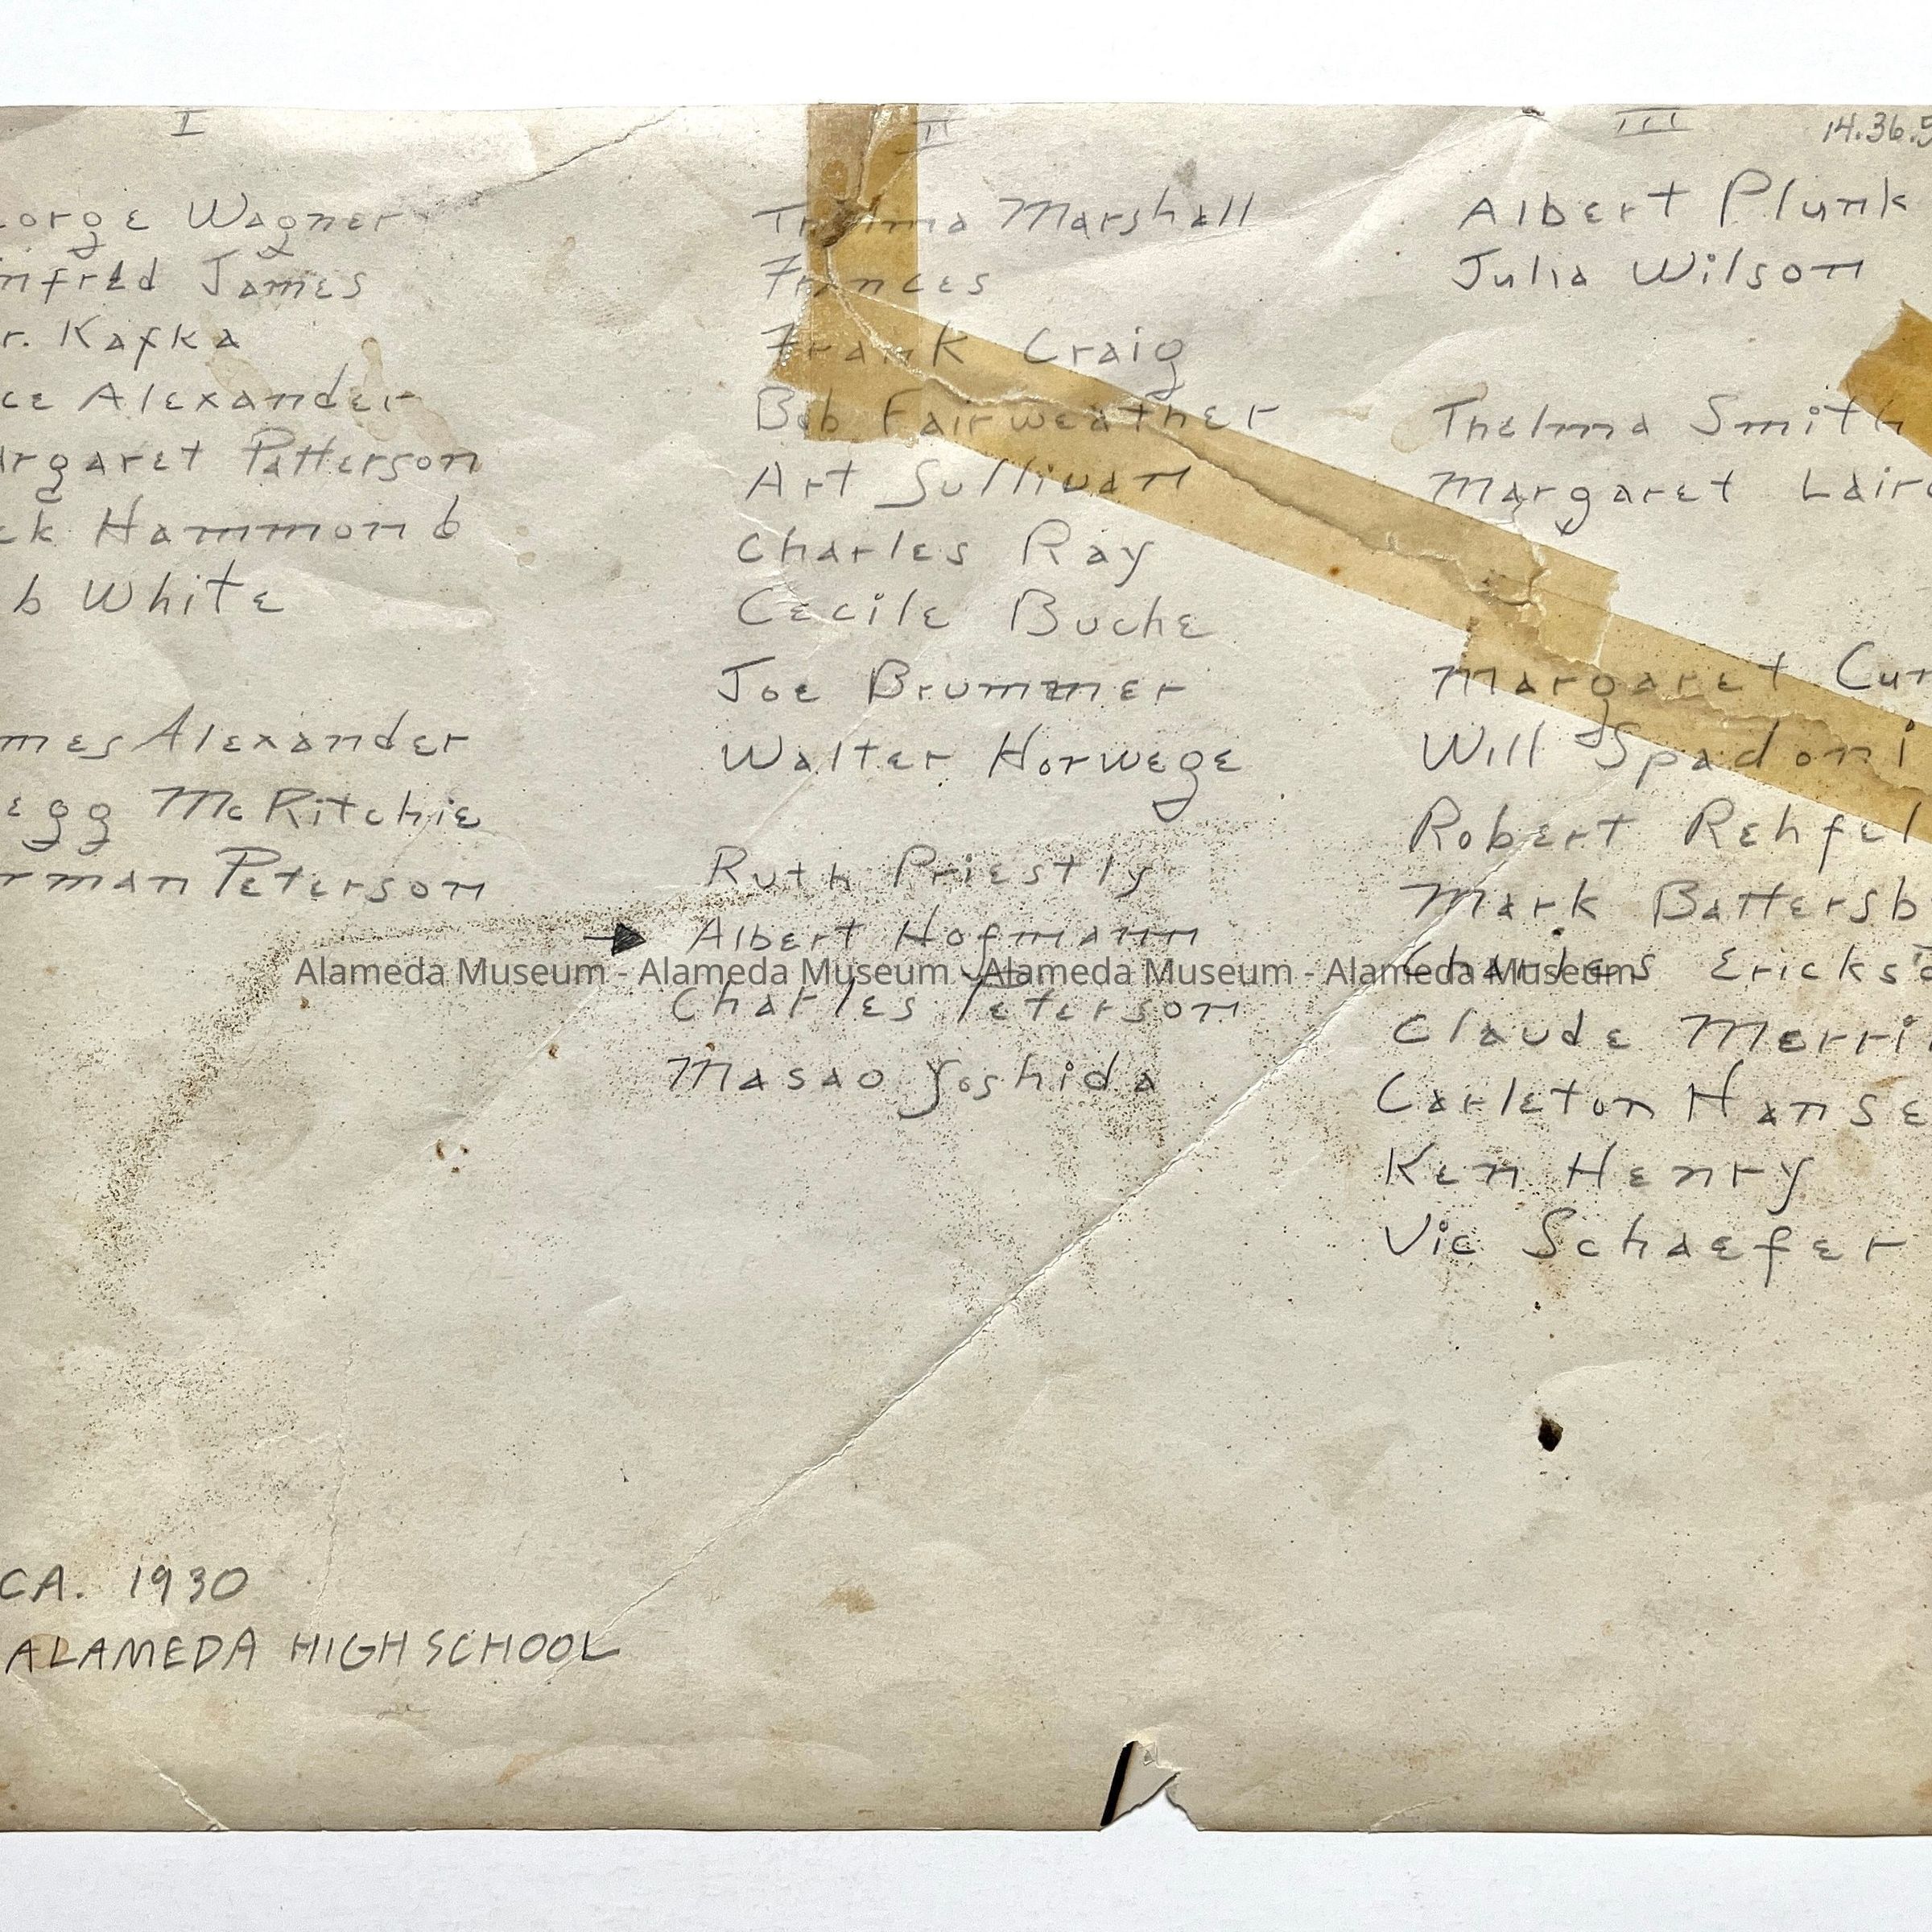 I
orge Wagner
nfred James
r. Kafka
ce Alexander
argaret Patterson
ck Hammond
b White
mes Alexander
egg McRitchie
rman Peterson
CA. 1930
ALAMEDA HIGH SCHOOL
II
Thelma Marshall
Frances
Frank Craig
Bob Fairweather
Art Sullivan
Charles Ray
Cecile Buche
Joe Brummer
Walter Horwege
Ruth Priestly
Albert Hofmann
Charles Peterson
Masao Yoshida
III
14.36.5
Albert Plunk
Julia Wilson
Thelma Smith
Margaret Laird
Margaret Cur
Will Spadoni
Robert Rehfel
Mark Battersb
Charles Erickso
Claude Merri
Carleton Hanse
Ken Henry
Vic Schaefer
Alameda Museum - Alameda Museum - Alameda Museum - Alameda Museum